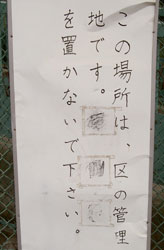 この場所は、区の管理
地です。
を置かないで下さい。